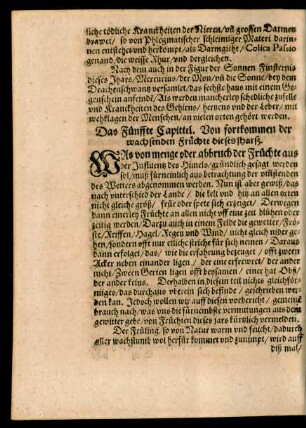 siche tödliche Kranckheiten der Nieren/ vñ grossen Darmen
drawet/ so von Phlegmatischer schleimiger Materi/ darin-
nen entstehet vnd herkompt/ als Darmgicht/ Colica Passio
genand/ die weisse Rhur/ vnd dergleichen.
Nach dem auch in der Figur der Sonnen Finsternis
dieses Jhars/ Mercurius/ der Mon/ vñ die Sonne/ bey dem
Drachenschwantz versamlet/ das sechste haus mit einem Ge-
genschein anfeind/ Als werden mancherley schedliche zufelle
vnd Kranckheiten des Gehirns/ hertzens vnd der Leber/ mit
wehklagen der Menschen/ an vielen orten gehört werden.
Das Fünffte Capittel. Von fortkommen der
wachsenden Früchte dieses Jhars.
WAs von menge oder abbruch der Früchte aus
der Influentz des Himels/ gründlich gesagt werden
sol/ muß fürnemlich aus betrachtung der
des Wetters abgenommen werden. Nun ist aber gewiß/ das
nach vnterschied der Lande/ die kelt vnd hitz an allen orten
nicht gleiche groß/ früe oder spete sich erzeiget/ Derwegen
dann einerley Früchte an allen nicht vff eine zeit blühen oder
zeitig werden/ Darzu auch in einem Felde die gewitter/ Frö-
ste/ Reiffen/ Hagel/ Regen vnd Wind/ nicht gleich nider ge-
hen/ sondern offt nur etliche striche für sich nemen/ Daraus
dann erfolget/ das/ wie die erfahrung erzeiget/ offt zween
Acker neben einander ligen/ der eine erfrewret/ der ander
nicht/ Zween Gerten ligen offt beysamen/ einer hat Obs/
der ander keins. Derhalben in diesem teil nichts gleichför-
miges/ das durchaus vberein sich befinde/ geschrieben wer-
den kan. Jedoch wollen wir auff diesen vorbericht/ gemeinẽ
brauch nach/ was vns die fürnembste vermutungen aus dem
gewitter gebẽ/ von Früchten dieses jars kürtzlich vermelden.
Der Früling/ so von Natur warm vnd feucht/ dadurch
aller wachstumb wol herfür kommet vnd zunimpt/ wird auff
diß mal/